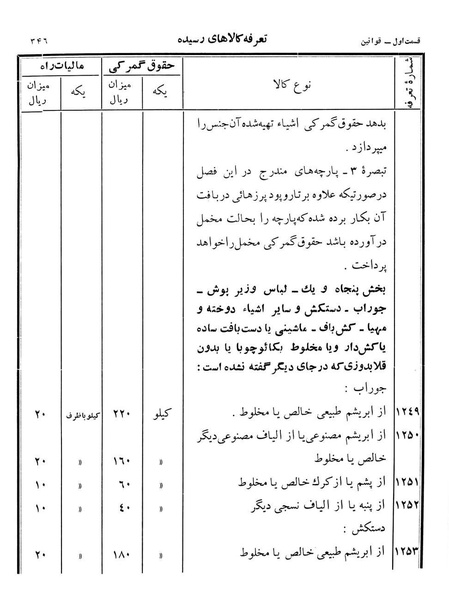 قسمت اول ــ قوانین	تعرفه کالاهای رسیده	۳۴۶
شمارهٔ تعرفه	نوع کالا	حقوق گمرکی	مالیات راه
یکه	میزان ریال	یکه	میزان ریال
بدهد حقوق گمرکی اشیاء تهیه شده آن جنس را
میپردازد .
تبصرهٔ ۳ ــ پارچه‌های مندرج در این فصل
در صورتیکه علاوه بر تار و پود پرزهائی در بافت
آن بکار برده شده که پارچه را بحالت مخمل
در آورده باشد حقوق گمرکی مخمل را خواهد
پرداخت .
بخش پنجاه و یك ــ لباس وزیر پوش ــ
جوراب ــ دستکش و سایر اشیاء دوخته و
مهیا ــ کش‌باف ــ ماشینی یا دست بافت ساده
یا کش‌دار و یا مخلوط بکائوچو با یا بدون
قلابدوزی که در جای دیگر گفته نشده است :
جوراب :
۱۲۴۹	از ابریشم طبیعی خالص یا مخلوط .	کیلو	۲۲۰	کیلو با ظرف	۲۰
۱۲۵۰	از ابریشم مصنوعی یا از الیاف مصنوعی دیگر
خالص یا مخلوط	»	۱۶۰	»	۲۰
۱۲۵۱	از پشم یا از کرك خالص یا مخلوط	»	۶۰	»	۱۰
۱۲۵۲	از پنبه یا از الیاف نسجی دیگر	»	۴۰	»	۱۰
دستکش :
۱۲۵۳	از ابریشم طبیعی خالص یا مخلوط	»	۱۸۰	»	۲۰